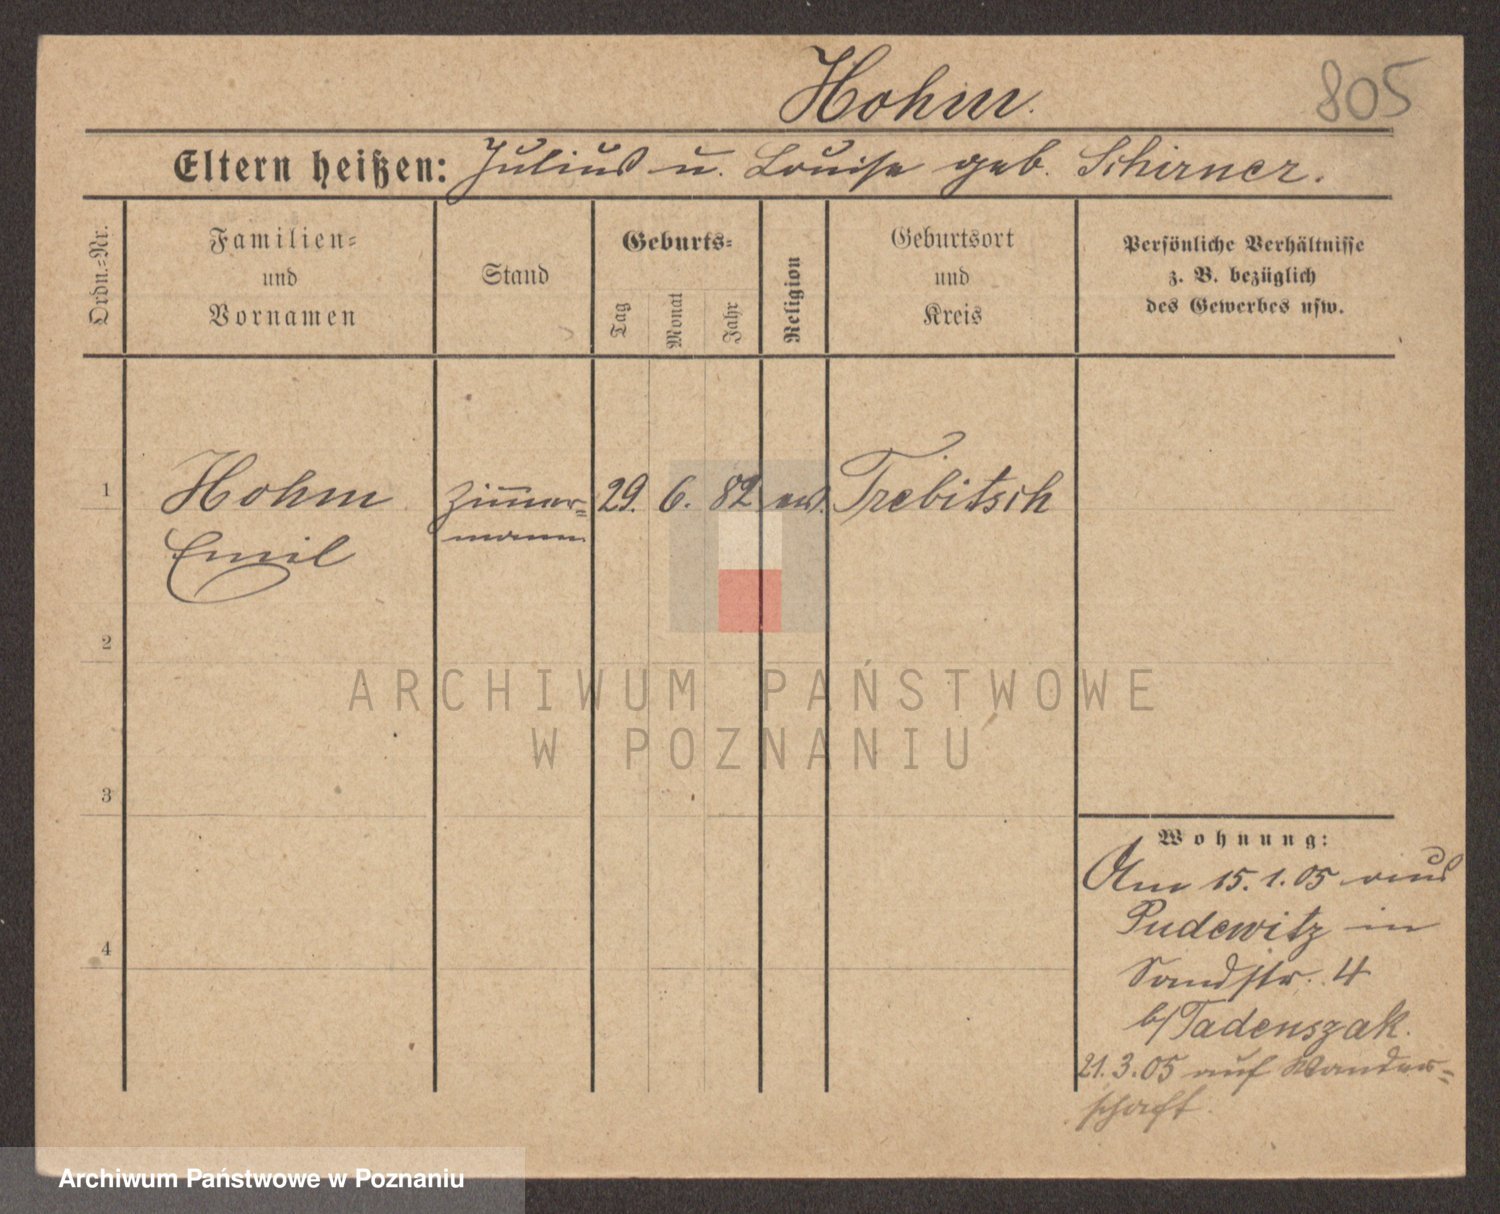 Hohm.
805
Eltern heißen: Julius u. Louise geb. Schirner.
Ordn.-Nr.
Familien-
und
Vornamen
Stand
Geburts-
Tag
Monat
Jahr
Religion
Geburtsort
und
Kreis
Persönliche Verhältnisse
z. B. bezüglich
des Gewerbes usw.
1
Hohm
Emil
Zimmer-
mann
29.
6.
82
ev.
Trebitsch
2
ARCHIWUM PAŃSTWOWE
W POZNANIU
3
4
Wohnung:
Am 15.1.05 aus
Pudewitz in
Sandstr. 4
b/Tadenszak.
21.3.05 auf Wander-
schaft.
Archiwum Państwowe w Poznaniu